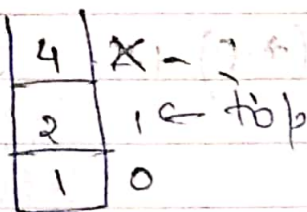 4 X -
2 1 ← top
1 0